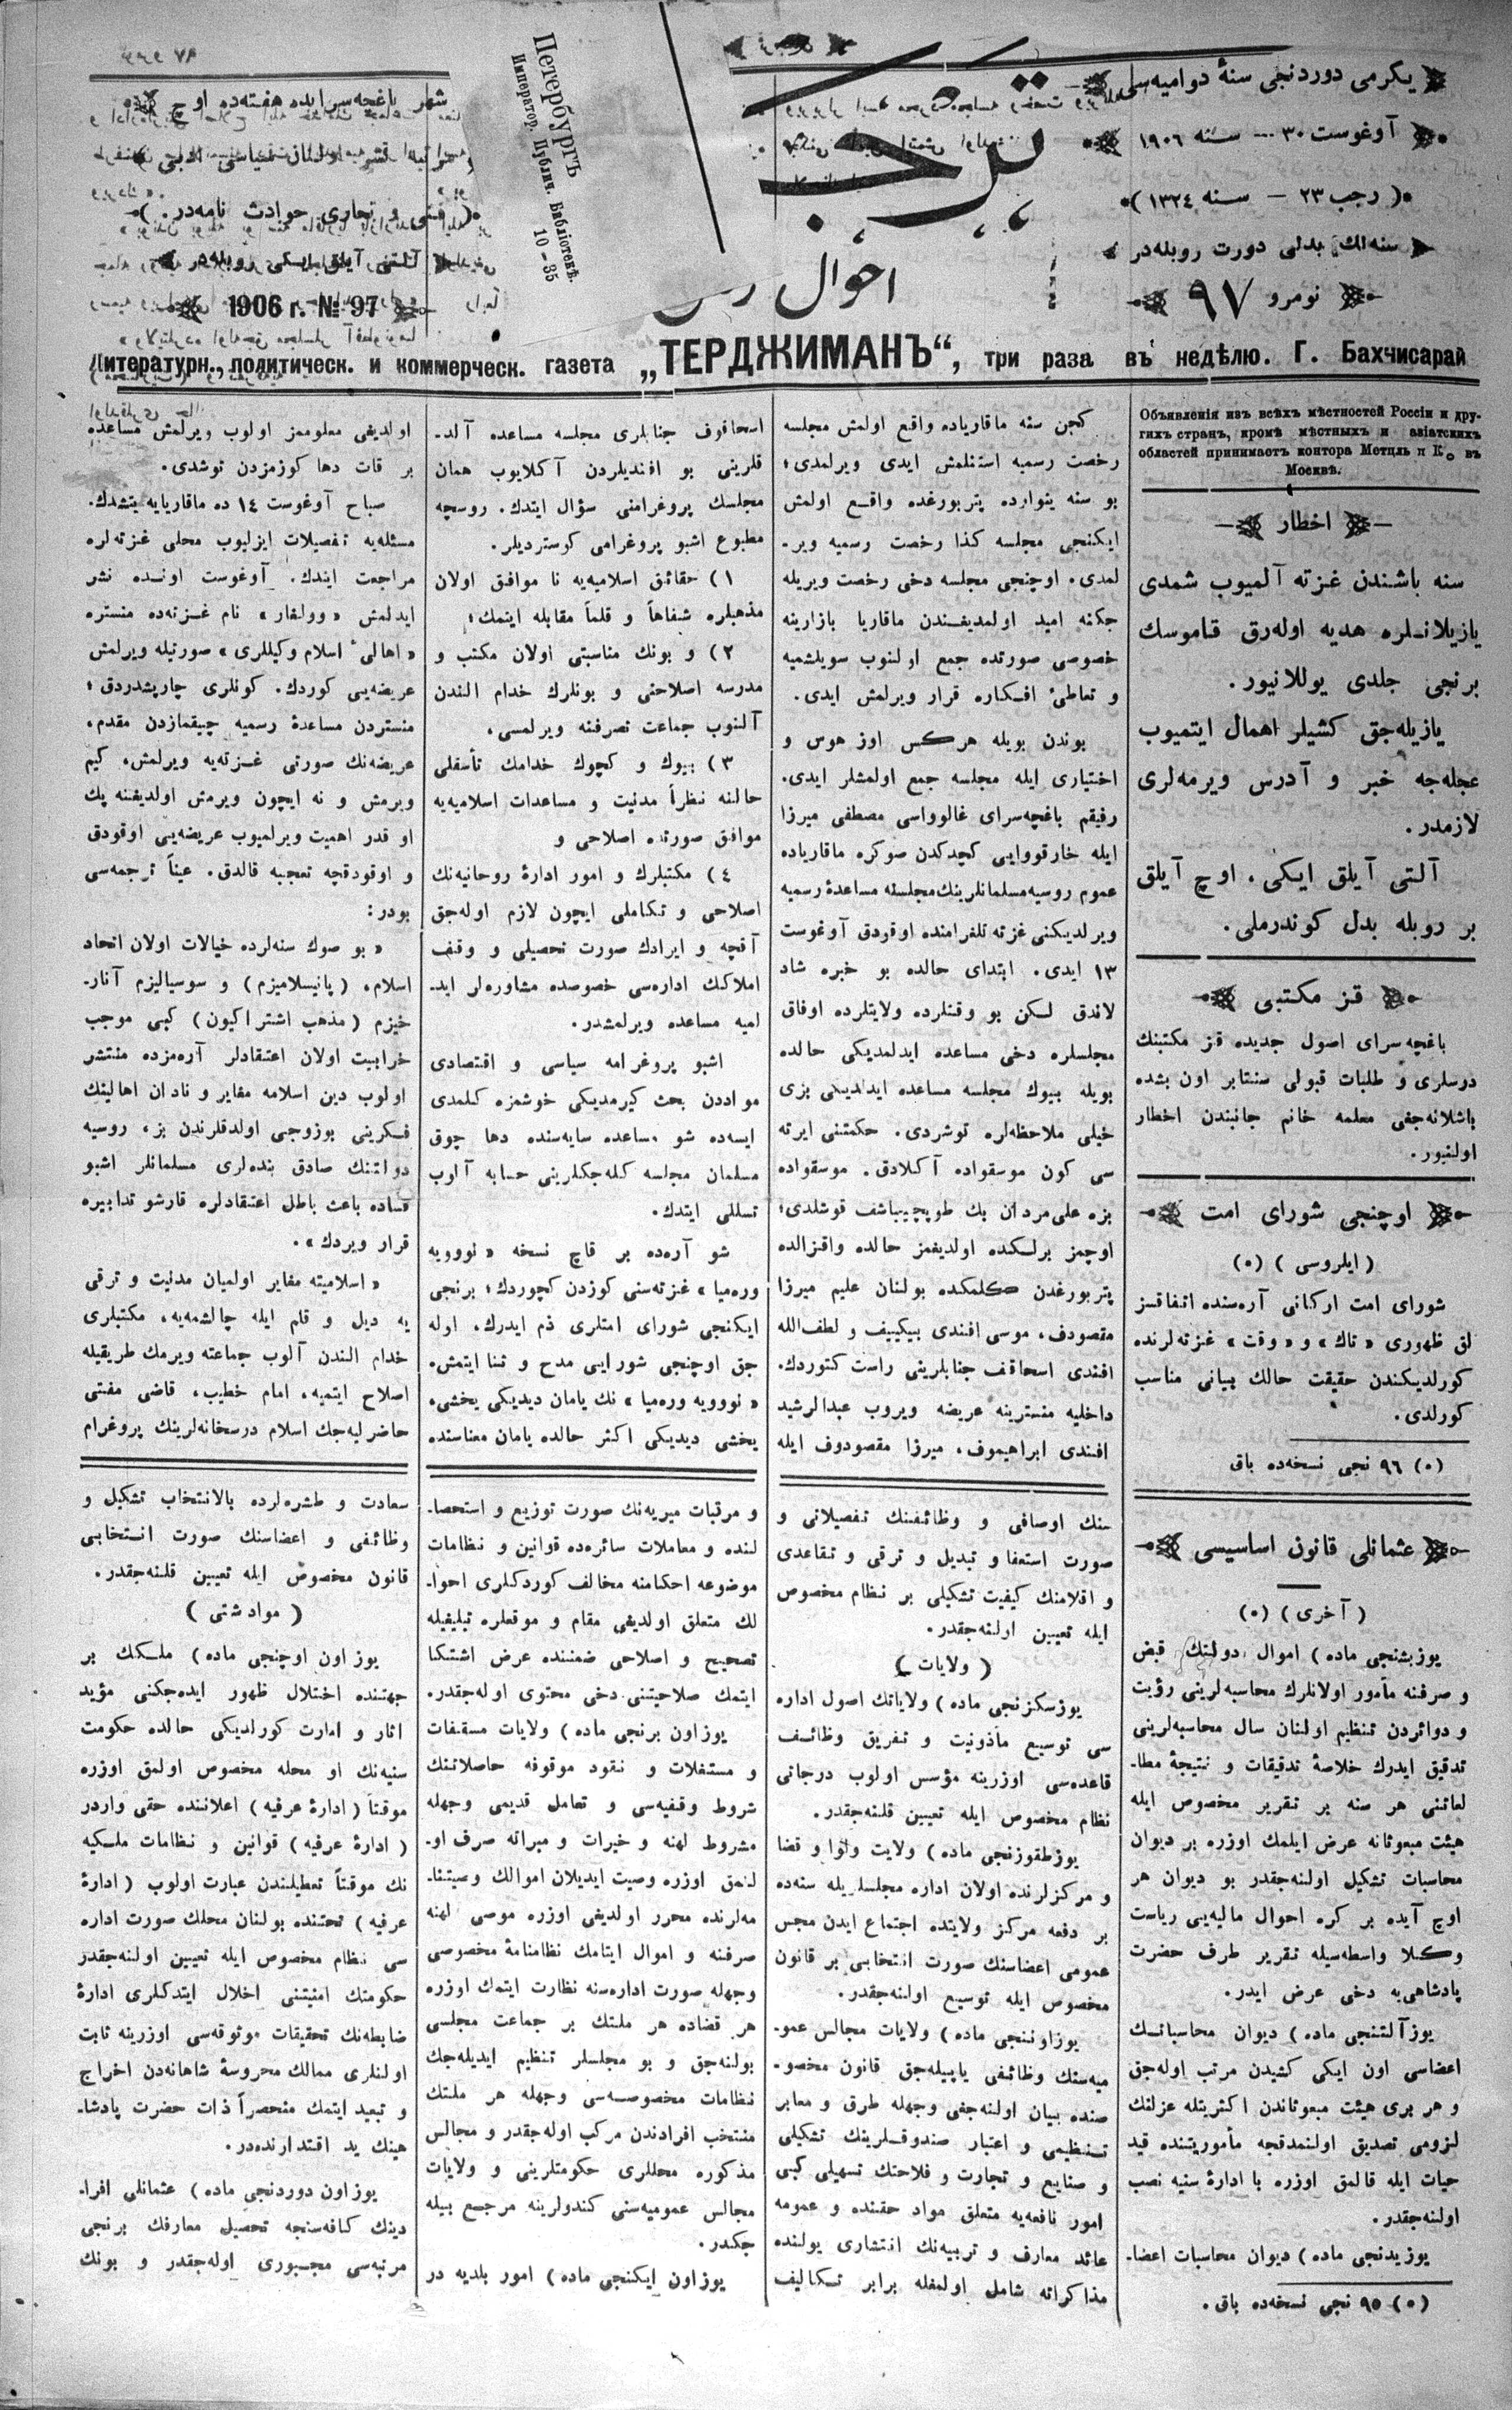 يكرمى دوردنجى سنۀ دواميه‌سى
آوغوست ٣٠ — سنه ١٩٠٦
( رجب ٢٣ — سنه ١٣٢٤ )
سنه‌لك بدلى دورت روبله‌در
نومرو ٩٧
احوال
Петербургъ
Император. Публич. Библіотекѣ.
10-35
شهر باغچه‌سرايده هفته‌ده اوچ
فنى و تجارى حوادث نامه‌در.
آلتى آيلق ايكى روبله‌در
1906 г. № 97
Литературн., политическ. и коммерческ. газета „ТЕРДЖИМАНЪ“, три раза въ недѣлю. Г. Бахчисарай
Объявленія изъ всѣхъ мѣстностей Россіи и дру-
гихъ странъ, кромѣ мѣстныхъ и азіатскихъ
областей принимаетъ контора Метцль и К° въ
Москвѣ.
اخطار
سنه باشندن غزته آلميوب شمدى
يازيلانلره هديه اوله‌رق قاموسك
برنجى جلدى يوللانيور.
يازيله‌جق كشيلر اهمال ايتميوب
عجله‌جه خبر و آدرس ويرمه‌لرى
لازمدر.
آلتى آيلق ايكى، اوچ آيلق
بر روبله بدل كوندرملى.
قز مكتبى
باغچه‌سراى اصول جديده قز مكتبنك
درسلرى و طلبات قبولى سنتابر اون بشده
باشلانه‌جغى معلمه خانم جانبندن اخطار
اولنيور.
اوچنجى شوراى امت
( ايلروسى ) (٥)
شوراى امت اركانى آره‌سنده اتفاقسز
لق ظهورى «تاك» و «وقت» غزته‌لرنده
كورلديكندن حقيقت حالك بيانى مناسب
كورلدى.
(٥) ٩٦ نجى نسخه‌ده باق
كچن سنه ماقارياده واقع اولمش مجلسه
رخصت رسميه استنلمش ايدى ويرلمدى؛
بو سنه ينوارده پتربورغده واقع اولمش
ايكنجى مجلسه كذا رخصت رسميه وير-
لمدى. اوچنجى مجلسه دخى رخصت ويريله
جكنه اميد اولمديغندن ماقاريا بازارينه
خصوصى صورتده جمع اولنوب سويلشميه
و تعاطئ افكاره قرار ويرلمش ايدى.
بوندن بويله هركس اوز هوس و
اختيارى ايله مجلسه جمع اولمشلر ايدى.
رفيقم باغچه‌سراى غالوواسى مصطفى ميرزا
ايله خارقووايى كچدكدن صوكره ماقارياده
عموم روسيه مسلمانلرينك مجلسنه مساعدۀ رسميه
ويرلديكنى غزته تلغرامنده اوقودق آوغوست
١٣ ايدى. ابتداى حالده بو خبره شاد
لاندق لكن بو وقتلرده ولايتلرده اوفاق
مجلسلره دخى مساعده ايدلمديكى حالده
بويله بيوك مجلسه مساعده ايدلديكى بزى
خيلى ملاحظه‌لره توشردى. حكمتنى ايرته
سى كون موسقواده آكلادق. موسقواده
بزه على‌مردان بك طوپچيباشف قوشلدى؛
اوچمز برلكده اولديغمز حالده واقزالده
پتربورغدن كلمكده بولنان عليم ميرزا
مقصودف، موسى افندى بيكييف و لطف‌الله
افندى اسحاقف جنابلرينى راست كتوردك.
داخليه منسترينه عريضه ويروب عبدالرشيد
افندى ابراهيموف، ميرزا مقصودوف ايله
اسحاقوف جنابلرى مجلسه مساعده آلد-
قلرينى بو افنديلردن آكلايوب همان
مجلسك پروغرامنى سؤال ايتدك. روسچه
مطبوع اشبو پروغرامى كوسترديلر.
١) حقائق اسلاميه‌يه نا موافق اولان
مذهبلره شفاهاً و قلماً مقابله ايتمك؛
٢) و بونك مناسبتى اولان مكتب و
مدرسه اصلاحتى و بونلرك خدام الندن
آلنوب جماعت تصرفنه ويرلمسى،
٣) بيوك و كچوك خدامك تأسفلى
حالنه نظراً مدنيت و مساعدات اسلاميه‌يه
موافق صورتده اصلاحى و
٤) مكتبلرك و امور ادارۀ روحانيه‌نك
اصلاحى و تكاملى ايچون لازم اوله‌جق
آقچه و ايرادك صورت تحصيلى و وقف
املاكك اداره‌سى خصوصده مشاوره‌لر ايد-
لميه مساعده ويرلمشدر.
اشبو پروغرامه سياسى و اقتصادى
مواددن بحث كيرمديكى خوشمزه كلمدى
ايسه‌ده شو مساعده سايه‌سنده دها چوق
مسلمان مجلسه كله‌جكلرينى حسابه آلوب
تسللى ايتدك.
شو آره‌ده بر قاچ نسخه «نوويه
وره‌ميا» غزته‌سنى كوزدن كچوردك؛ برنجى
ايكنجى شوراى امتلرى ذم ايدرك، اوله
جق اوچنجى شورايى مدح و ثنا ايتمش.
«نوويه وره‌ميا» نك يامان ديديكى يخشى،
يخشى ديديكى اكثر حالده يامان معناسنده
اولديغى معلوممز اولوب ويرلمش مساعده
بر قات دها كوزمزدن توشدى.
صباح آوغوست ١٤ ده ماقاريايه يتشدك.
مسئله‌يه تفصيلات ايزليوب محلى غزته‌لره
مراجعت ايتدك. آوغوست اونده نشر
ايدلمش «وولغار» نام غزته‌ده منستره
«اهالئ اسلام وكيللرى» صورتيله ويرلمش
عريضه‌يى كوردك. كونلرى چاپشدردق؛
منستردن مساعدۀ رسميه چيقمازدن مقدم،
عريضه‌نك صورتى غزته‌يه ويرلمش، كيم
ويرمش و نه ايچون ويرمش اولديغنه پك
او قدر اهميت ويرلميوب عريضه‌يى اوقودق
و اوقودقچه تعجبه قالدق. عيناً ترجمه‌سى
بودر:
«بو صوك سنه‌لرده خيالات اولان اتحاد
اسلام، (پانيسلاميزم) و سوسياليزم آنار-
خيزم (مذهب اشتراكيون) كبى موجب
خرابيت اولان اعتقادلر آره‌مزده منتشر
اولوب دين اسلامه مغاير و نادان اهالينك
فكرينى بوزوجى اولدقلرندن بز، روسيه
دولتنك صادق بنده‌لرى مسلمانلر اشبو
فساده باعث باطل اعتقادلره قارشو تدابيره
قرار ويردك».
«اسلاميته مغاير اولميان مدنيت و ترقى
يه ديل و قلم ايله چالشمه‌يه، مكتبلرى
خدام الندن آلوب جماعته ويرمك طريقيله
اصلاح ايتميه، امام خطيب، قاضى مفتى
حاضرليه‌جك اسلام درسخانه‌لرينك پروغرام
عثمانلى قانون اساسيسى
( آخرى ) (٥)
يوزبشنجى ماده) اموال دولتك قبض
و صرفنه مأمور اولانلرك محاسبه‌لرينى رؤيت
و دوائردن تنظيم اولنان سال محاسبه‌لرينى
تدقيق ايدرك خلاصۀ تدقيقات و نتيجۀ مطا-
لعاتنى هر سنه بر تقرير مخصوص ايله
هيئت مبعوثانه عرض ايلمك اوزره بر ديوان
محاسبات تشكيل اولنه‌جقدر بو ديوان هر
اوچ آيده بر كره احوال ماليه‌يى رياست
وكلا واسطه‌سيله تقرير طرف حضرت
پادشاهى‌يه دخى عرض ايدر.
يوزآلتنجى ماده) ديوان محاسباتك
اعضاسى اون ايكى كشيدن مرتب اوله‌جق
و هر برى هيئت مبعوثاندن اكثريتله عزلنك
لزومى تصديق اولنمدقجه مأموريتنده قيد
حيات ايله قالمق اوزره با ادارۀ سنيه نصب
اولنه‌جقدر.
يوزيدنجى ماده) ديوان محاسبات اعضا-
(٥) ٩٥ نجى نسخه‌ده باق.
سنك اوصافى و وظائفنك تفصيلاتى و
صورت استعفا و تبديل و ترقى و تقاعدى
و اقلامنك كيفيت تشكيلى بر نظام مخصوص
ايله تعيين اولنه‌جقدر.
( ولايات )
يوزسكزنجى ماده) ولاياتك اصول اداره
سى توسيع مأذونيت و تفريق وظائف
قاعده‌سى اوزرينه مؤسس اولوب درجاتى
نظام مخصوص ايله تعيين قلنه‌جقدر.
يوزطقوزنجى ماده) ولايت ولوا و قضا
و مركزلرنده اولان اداره مجلسلريله سنه‌ده
بر دفعه مركز ولايتده اجتماع ايدن مجلس
عمومى اعضاسنك صورت انتخابى بر قانون
مخصوص ايله توسيع اولنه‌جقدر.
يوزاوننجى ماده) ولايات مجالس عمو-
ميه‌سنك وظائفى ياپيله‌جق قانون مخصو-
صنده بيان اولنه‌جغى وجهله طرق و معابر
تنظيمى و اعتبار صندوقلرينك تشكيلى
و صنايع و تجارت و فلاحتك تسهيلى كبى
امور نافعه‌يه متعلق مواد حقنده و عمومه
عائد معارف و تربيه‌نك انتشارى يولنده
مذاكراته شامل اولمغله برابر تكاليف
و مرقبات ميريه‌نك صورت توزيع و استحصا-
لنده و معاملات سائره‌ده قوانين و نظامات
موضوعه احكامنه مخالف كوردكلرى احوا-
لك متعلق اولديغى مقام و موقعلره تبليغيله
تصحيح و اصلاحى ضمننده عرض اشتكا
ايتمك صلاحيتنى دخى محتوى اوله‌جقدر.
يوزاون برنجى ماده) ولايات مسقفات
و مستغلات و نقود موقوفه حاصلاتنك
شروط وقفيه‌سى و تعامل قديمى وجهله
مشروط لهنه و خيرات و مبراته صرف او-
لنمق اوزره وصيت ايديلان اموالك وصيتنا-
مه‌لرنده محرر اولديغى اوزره موصى لهنه
صرفنه و اموال ايتامك نظامنامۀ مخصوصى
وجهله صورت اداره‌سنه نظارت ايتمك اوزره
هر قضاده هر ملتك بر جماعت مجلسى
بولنه‌جق و بو مجلسلر تنظيم ايديله‌جك
نظامات مخصوصه‌سى وجهله هر ملتك
منتخب افرادندن مركب اوله‌جقدر و مجالس
مذكوره محللرى حكومتلرينى و ولايات
مجالس عموميه‌سنى كندولرينه مرجع بيله
جكدر.
يوزاون ايكنجى ماده) امور بلديه در
سعادت و طشره‌لرده بالانتخاب تشكيل و
وظائفى و اعضاسنك صورت انتخابى
قانون مخصوص ايله تعيين قلنه‌جقدر.
( مواد شتى )
يوزاون اوچنجى ماده) ملكك بر
جهتنده اختلال ظهور ايده‌جكنى مؤيد
اثار و امارت كورلديكى حالده حكومت
سنيه‌نك او محله مخصوص اولمق اوزره
موقتاً (ادارۀ عرفيه) اعلاننده حقى واردر
(ادارۀ عرفيه) قوانين و نظامات ملكيه
نك موقتاً تعطيلندن عبارت اولوب (ادارۀ
عرفيه) تحتنده بولنان محلك صورت اداره
سى نظام مخصوص ايله تعيين اولنه‌جقدر
حكومتك امنيتنى اخلال ايتدكلرى ادارۀ
ضابطه‌نك تحقيقات موثوقه‌سى اوزرينه ثابت
اولنلرى ممالك محروسۀ شاهانه‌دن اخراج
و تبعيد ايتمك منحصراً ذات حضرت پادشا-
هينك يد اقتدارنده‌در.
يوزاون دوردنجى ماده) عثمانلى افرا-
دينك كافه‌سنجه تحصيل معارفك برنجى
مرتبه‌سى مجبورى اوله‌جقدر و بونك